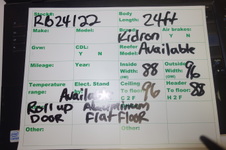 Stock#: RB24122 Body Length: 24ft
Make: Model: Body: Kidron Air brakes: Y N
Gvw: CDL: Y N Reefer Model: Available
Mileage: Year: Inside Width: 88 Outside Width: 96
Temperature range: Elect. Stand Available Ceiling To floor: 96 Header To floor: 88
C 2 F H 2 F
Roll up Door Aluminum Flat Floor
Other: Other: